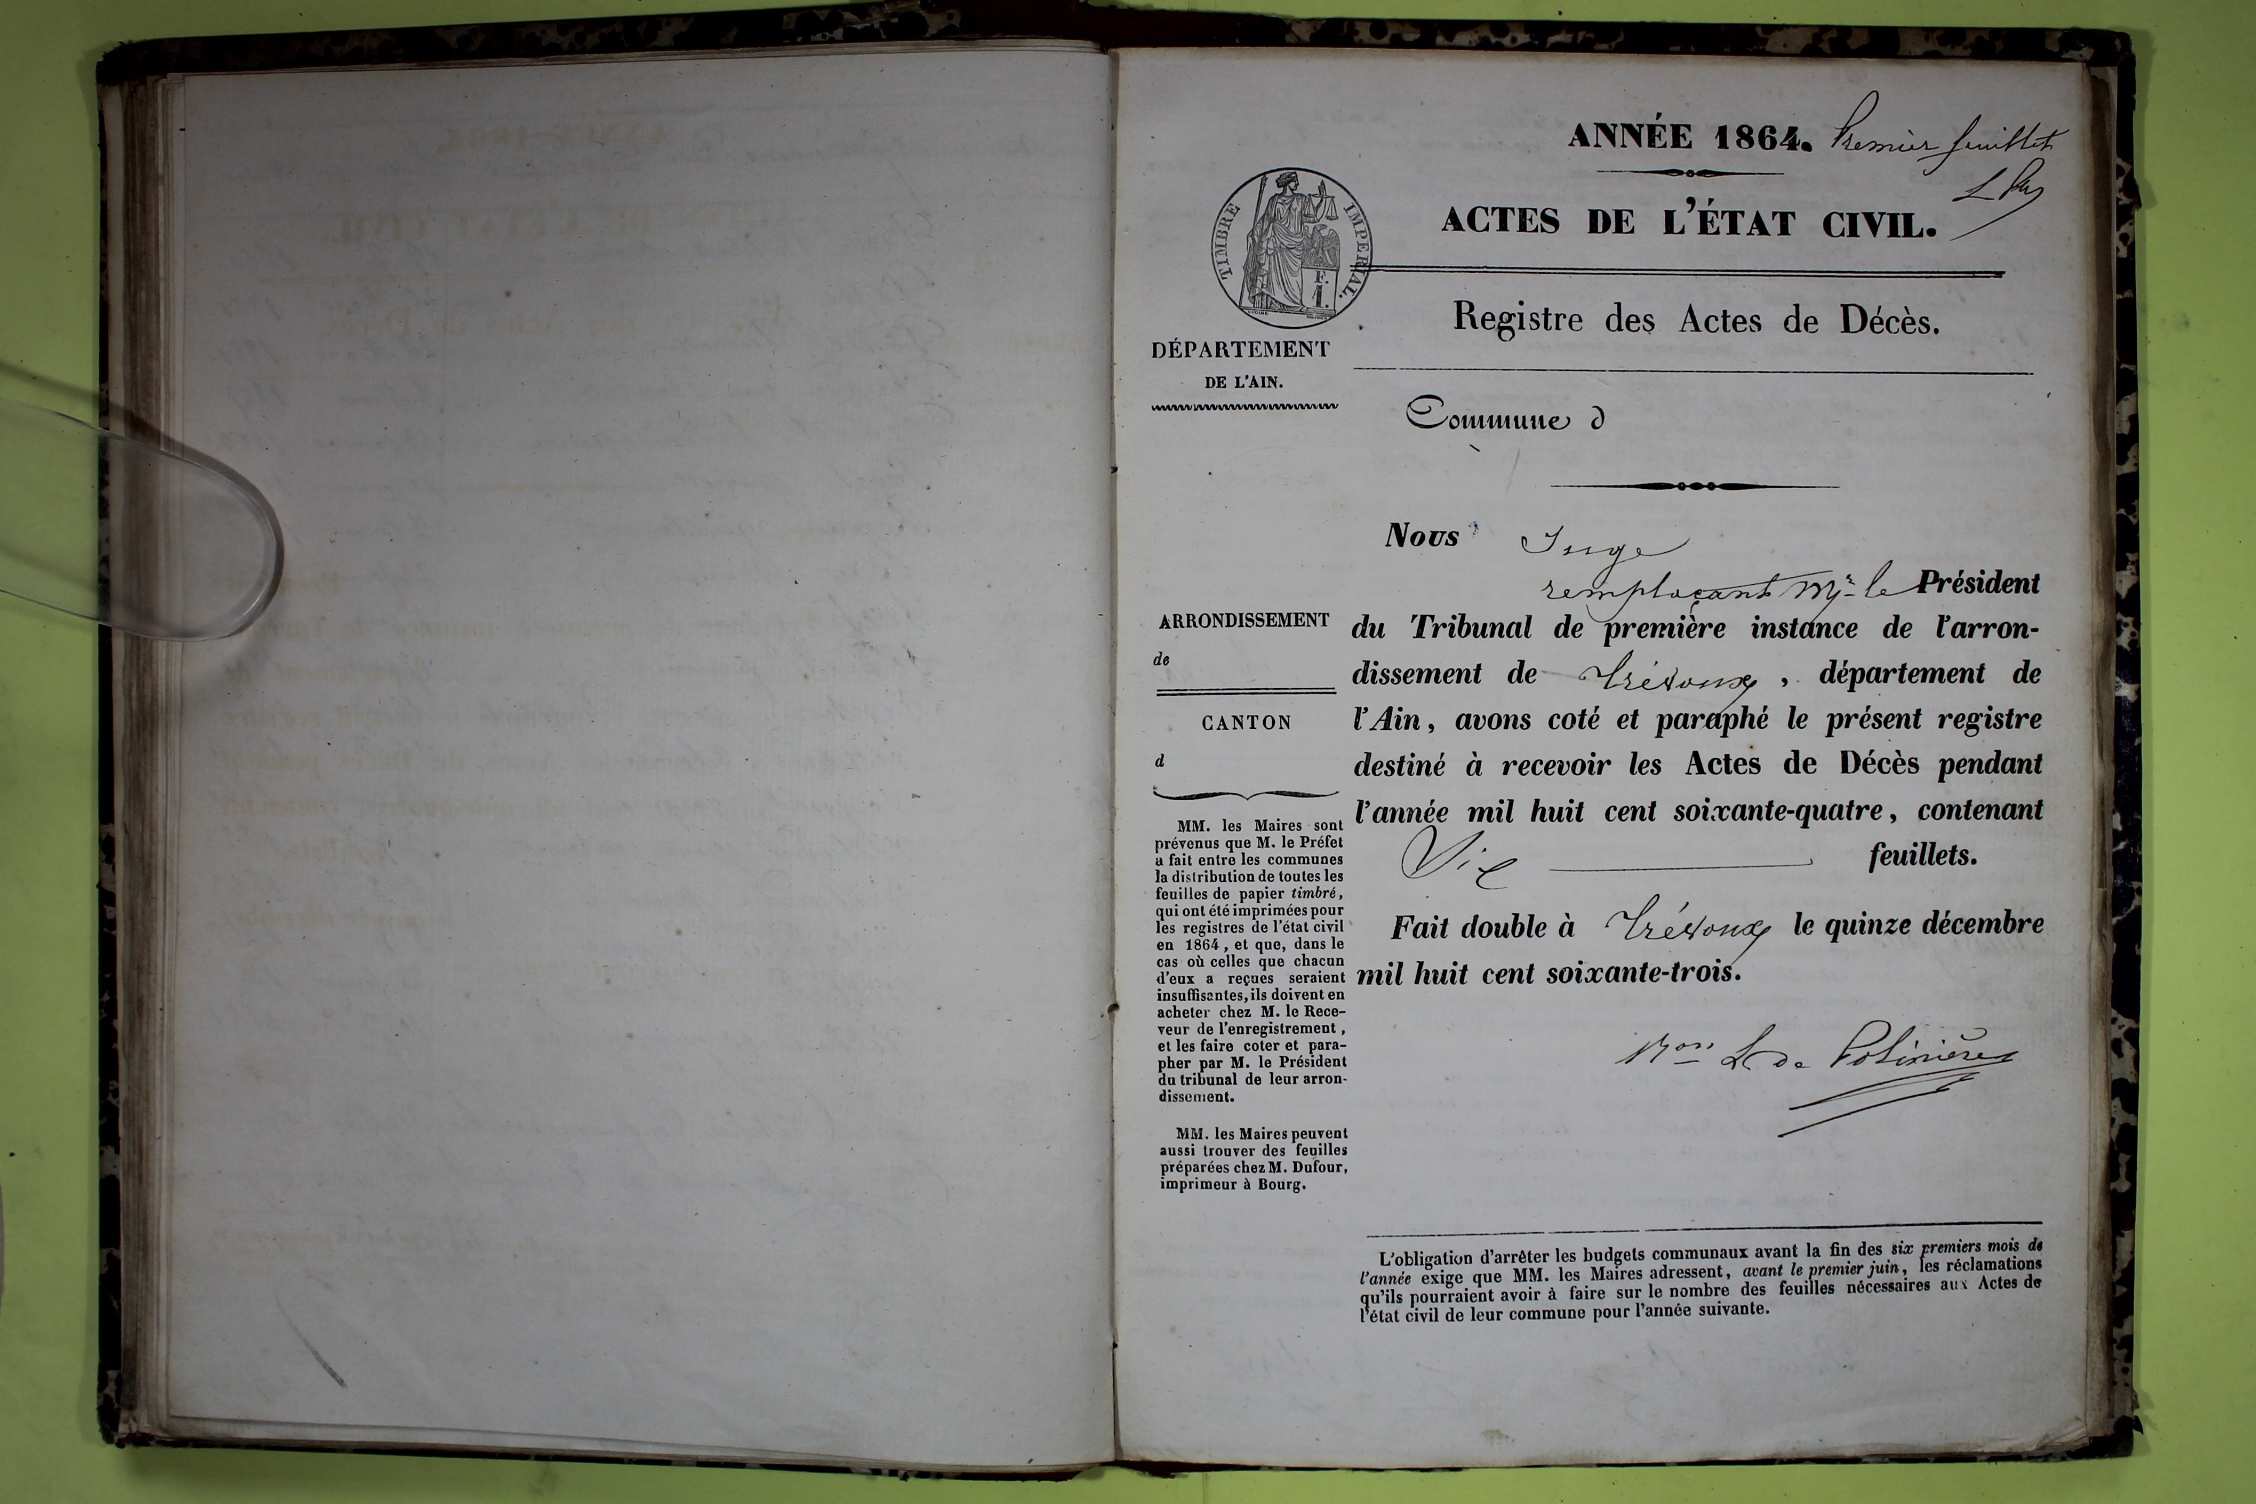 ANNÉE 1864. Premier feuillet
ACTES DE L'ÉTAT CIVIL.
TIMBRE IMPERIAL.
F.
1.
Registre des Actes de Décès.
DÉPARTEMENT
DE L'AIN.
Commune d
Nous Juge
remplaçant Mr le Président
du Tribunal de première instance de l'arron-
dissement de Trévoux, département de
l'Ain, avons coté et paraphé le présent registre
destiné à recevoir les Actes de Décès pendant
l'année mil huit cent soixante-quatre, contenant
Six feuillets.
Fait double à Trévoux le quinze décembre
mil huit cent soixante-trois.
Bon L de Polinière
ARRONDISSEMENT
de
CANTON
d
MM. les Maires sont
prévenus que M. le Préfet
a fait entre les communes
la distribution de toutes les
feuilles de papier timbré,
qui ont été imprimées pour
les registres de l'état civil
en 1864, et que, dans le
cas où celles que chacun
d'eux a reçues seraient
insuffisantes, ils doivent en
acheter chez M. le Rece-
veur de l'enregistrement,
et les faire coter et para-
pher par M. le Président
du tribunal de leur arron-
dissement.
MM. les Maires peuvent
aussi trouver des feuilles
préparées chez M. Dufour,
imprimeur à Bourg.
L'obligation d'arrêter les budgets communaux avant la fin des six premiers mois de
l'année exige que MM. les Maires adressent, avant le premier juin, les réclamations
qu'ils pourraient avoir à faire sur le nombre des feuilles nécessaires aux Actes de
l'état civil de leur commune pour l'année suivante.